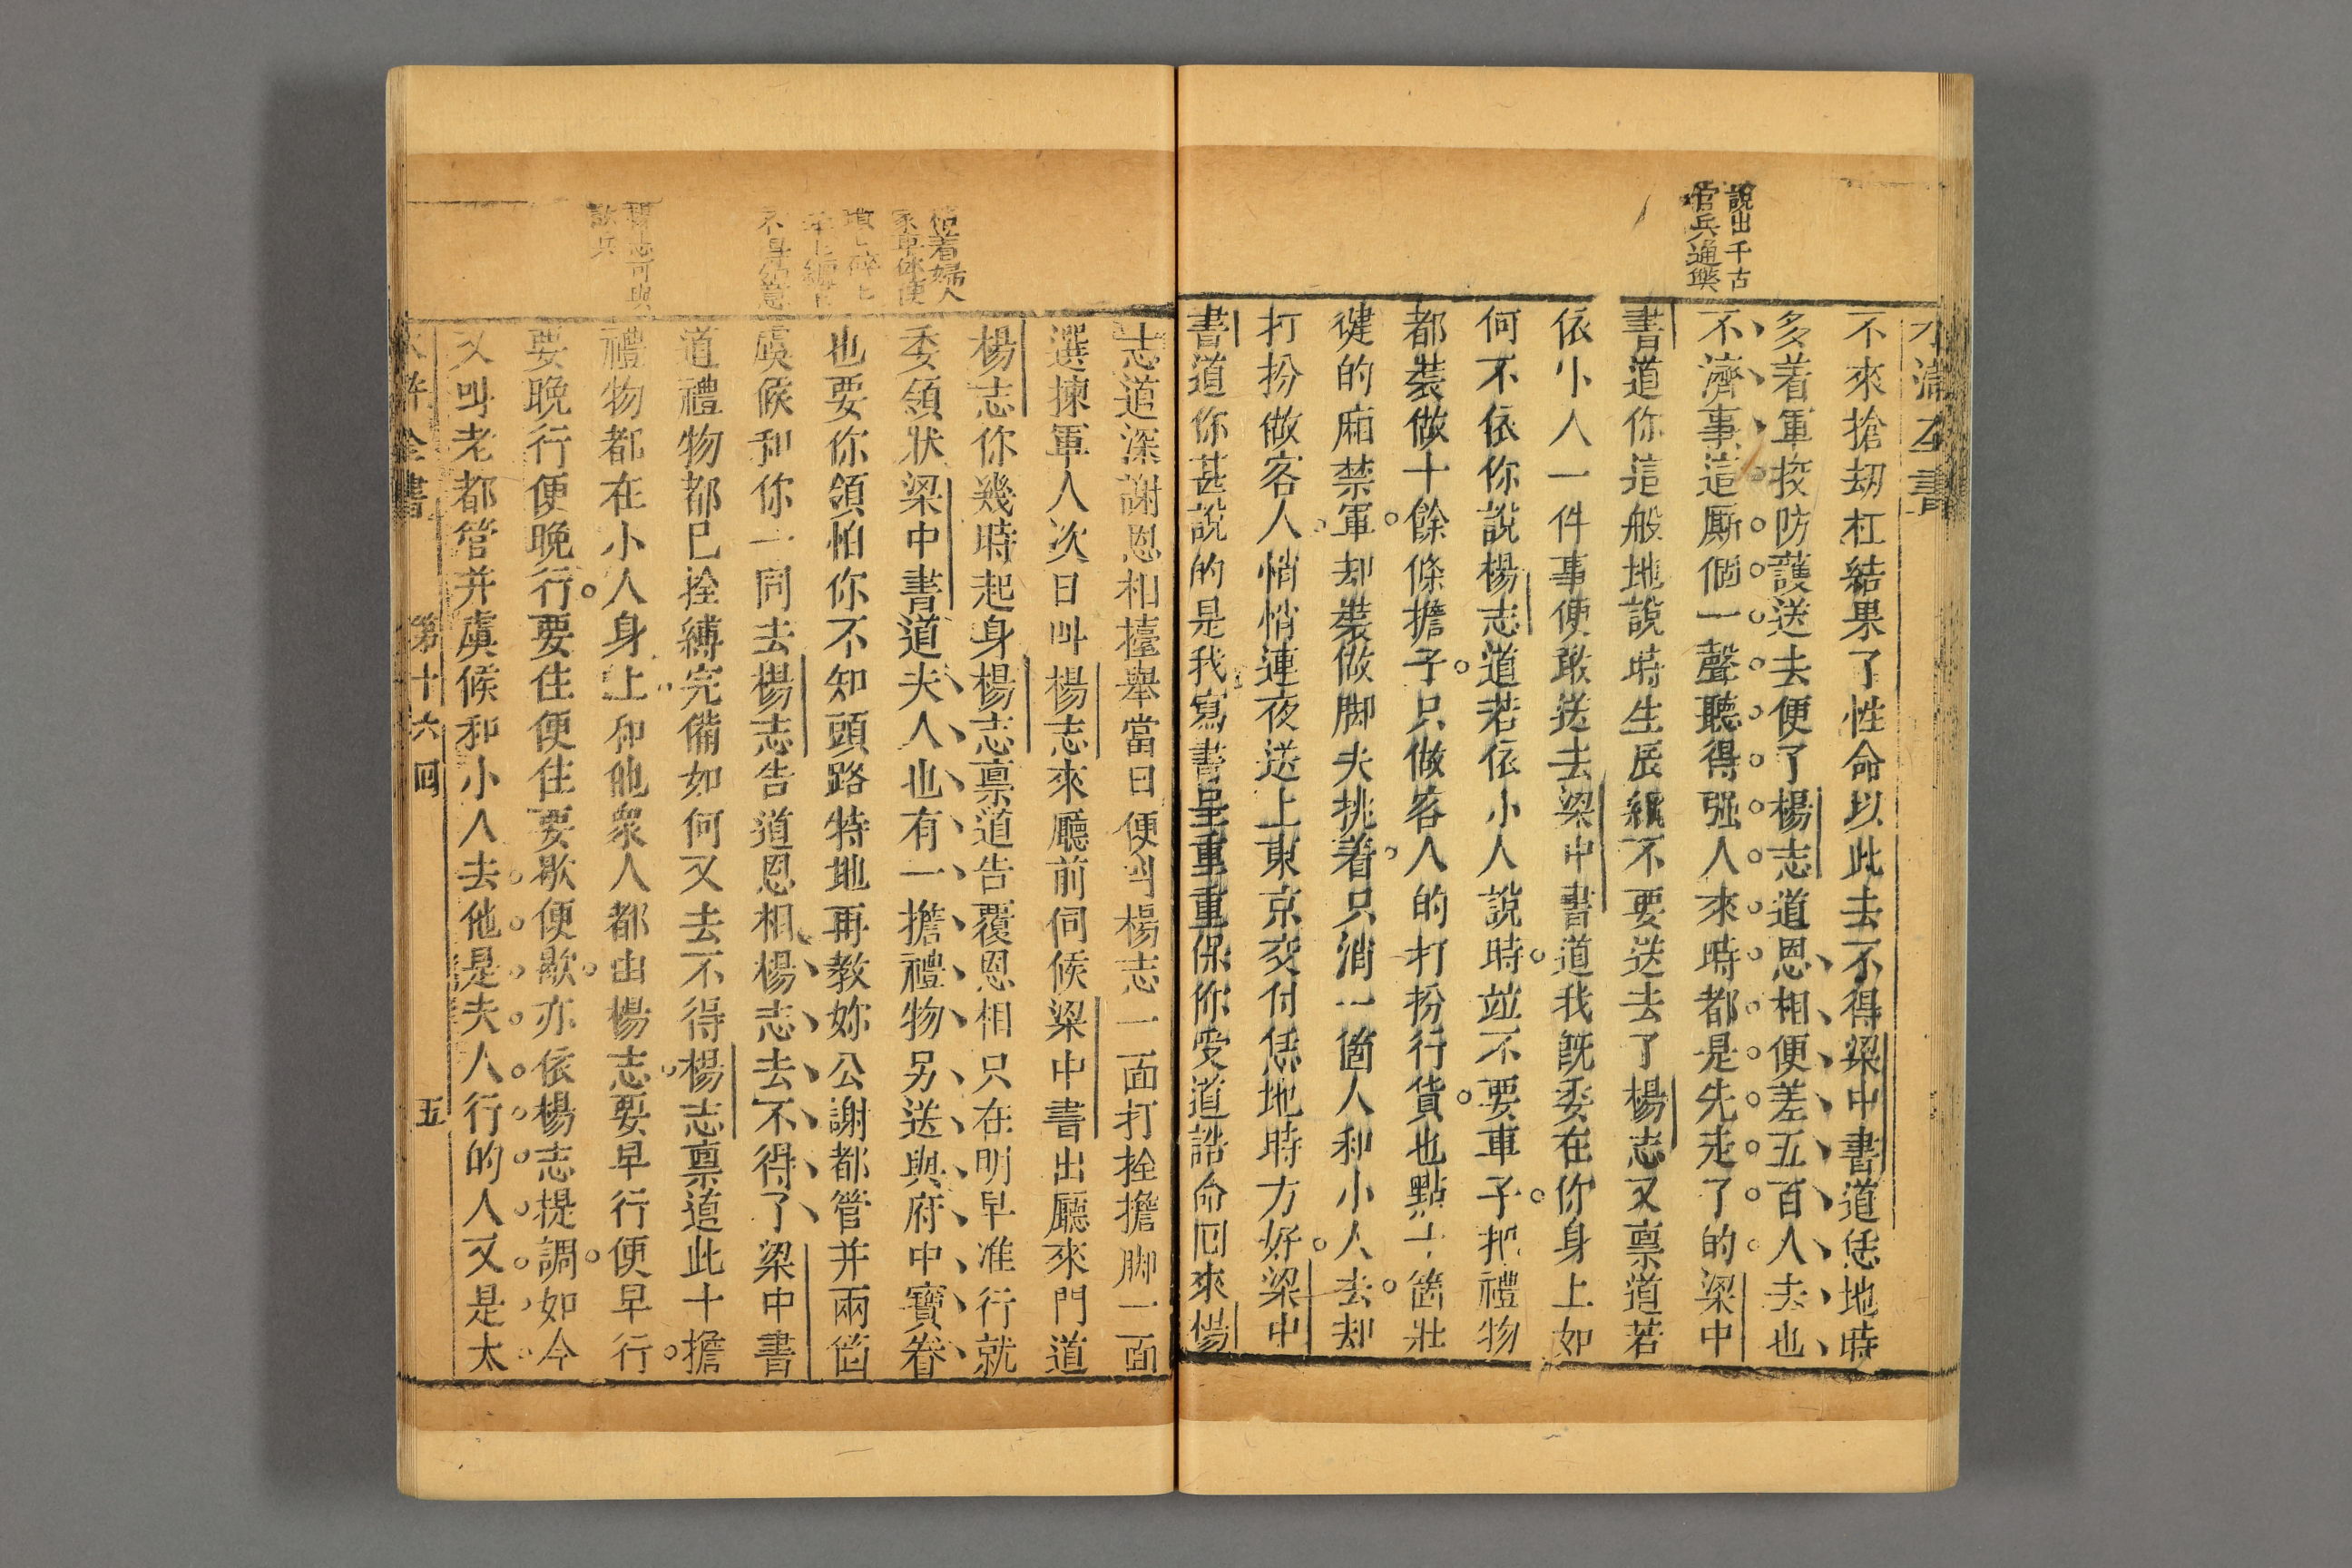 說出千古
官兵通弊
不來搶刼枉結果了性命以此去不得梁中書道恁地時
多着軍挍防護送去便了楊志道恩相便差五百人去也
不濟事這厮個一聲聽得强人來時都是先走了的梁中
書道你這般地說時生辰綱不要送去了楊志又禀道若
依小人一件事便敢送去梁中書道我旣委在你身上如
何不依你說楊志道若依小人說時竝不要車子把禮物
都裝做十餘條擔子只做客人的打扮行貨也點十箇壯
徤的廂禁軍却裝做脚夫挑着只消一箇人和小人去却
打扮做客人悄悄連夜送上東京交付恁地時方好梁中
書道你甚說的是我寫書呈重重保你受道誥命囘來楊
志道深謝恩相擡舉當日便叫楊志一面打拴擔脚一面
選揀軍人次日叫楊志來廳前伺候梁中書出廳來門道
楊志你幾時起身楊志禀道告覆恩相只在明早准行就
委領狀梁中書道夫人也有一擔禮物另送與府中寶眷
也要你領怕你不知頭路特地再教妳公謝都管并兩箇
虞候和你一同去楊志告道恩相楊志去不得了梁中書
道禮物都已拴縛完備如何又去不得楊志禀道此十擔
禮物都在小人身上和他衆人都由楊志要早行便早行
要晚行便晚行要住便住要歇便歇亦依楊志提調如今
又叫老都管并虞候和小人去他是夫人行的人又是太
水滸全書 第十六囘 五